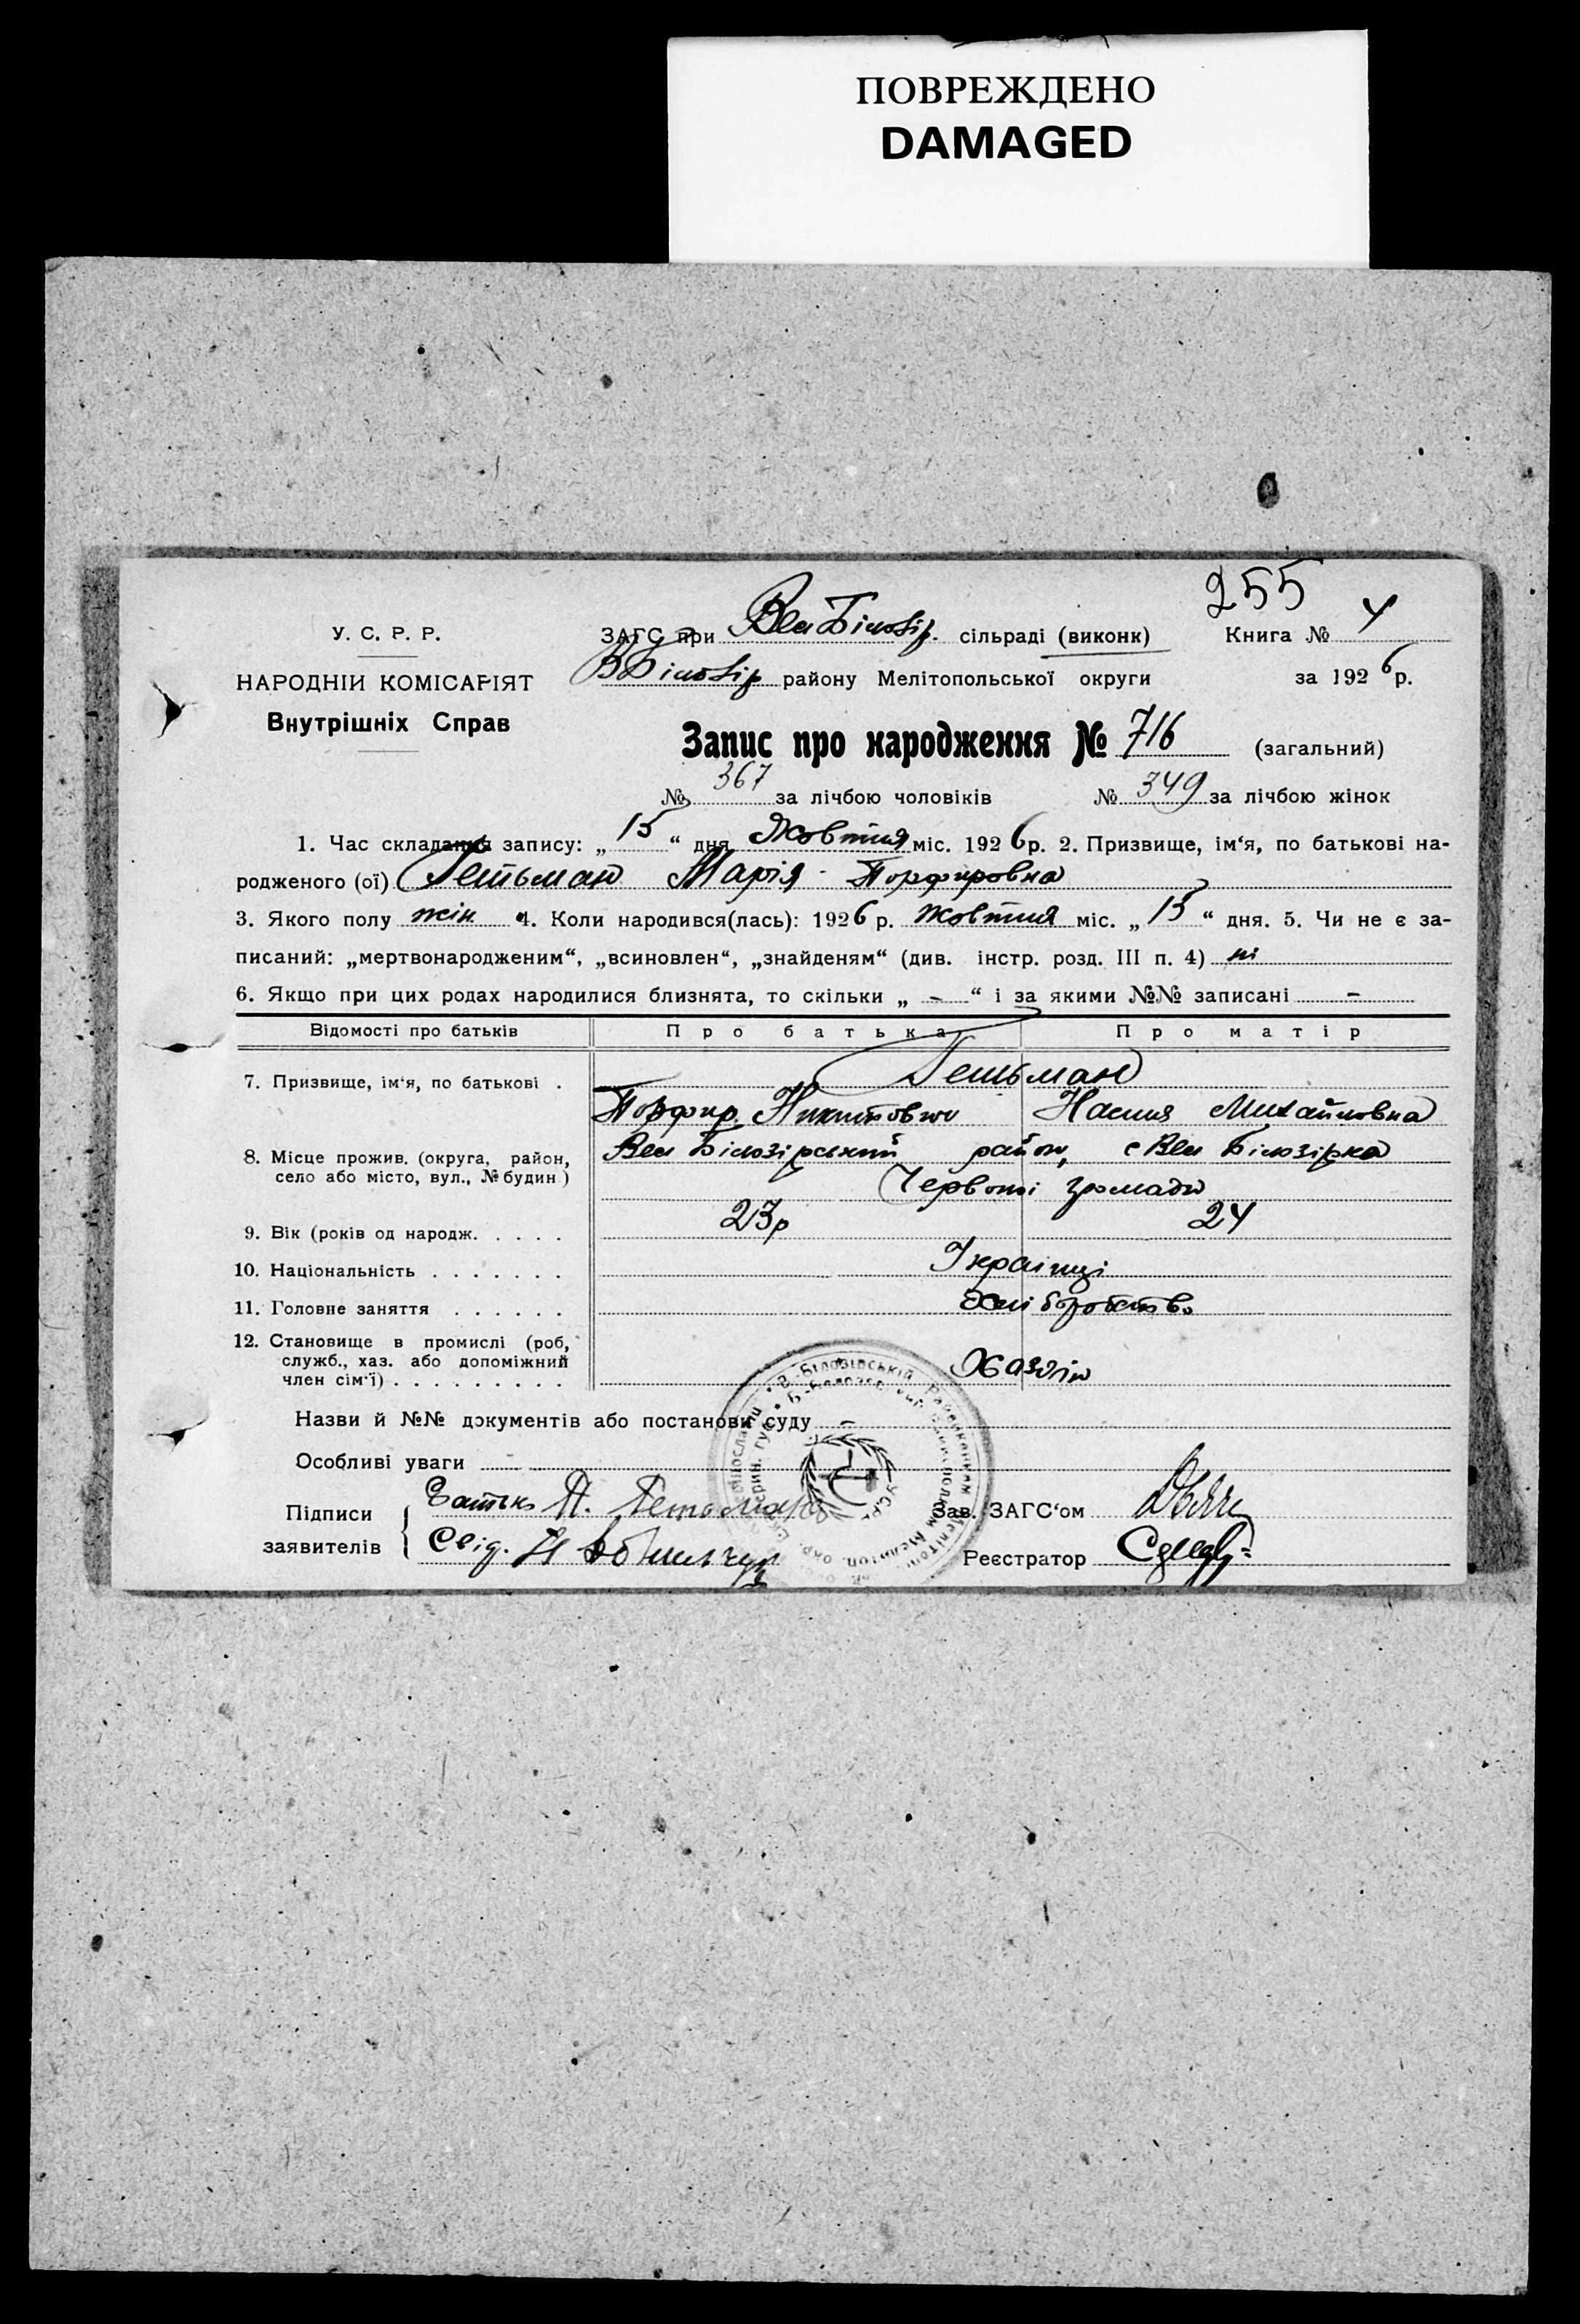 ПОВРЕЖДЕНО
DAMAGED
255
У. С. Р. Р.
ЗАГС при Вел Білозір. сільраді (виконк) Книга № 4
НАРОДНІЙ КОМІСАРІЯТ
ВБілозір району Мелітопольської округи за 1926 р.
Внутрішніх Справ
Запис про народження № 716 (загальний)
№ 367 за лічбою чоловіків № 349 за лічбою жінок
1. Час складання запису: „ 15 “ дня Жовтня міс. 1926 р. 2. Призвище, ім‘я, по батькові на-
родженого (ої) Гетьман Марія Порфировна
3. Якого полу жін. 4. Коли народився(лась): 1926 р. Жовтня міс. „ 13 “ дня. 5. Чи не є за-
писаний: „мертвонародженим“, „всиновлен“, „знайденям“ (див. інстр. розд. III п. 4) ні
6. Якщо при цих родах народилися близнята, то скільки „ - “ і за якими №№ записані -
Відомості про батьків Про батька Про матір
Гетьман
7. Призвище, ім‘я, по батькові .
Порфир Никитович Настя Михайловна
8. Місце прожив. (округа, район,
село або місто, вул., № будин )
Вел Білозірський район, с Вел Білозірка
Червоної громади
9. Вік (років од народж. . . . . 23р 24
10. Національність . . . . . . . Українці
11. Головне заняття . . . . . . Хліборобство
12. Становище в промислі (роб,
служб., хаз. або допоміжний
член сім‘ї) . . . . . . . . . Хазяїн
Назви й №№ документів або постанови суду -
Особливі уваги
Підписи
заявителів
Батько П. Гетьман
Свід. Н
Зав. ЗАГС‘ом
Реєстратор